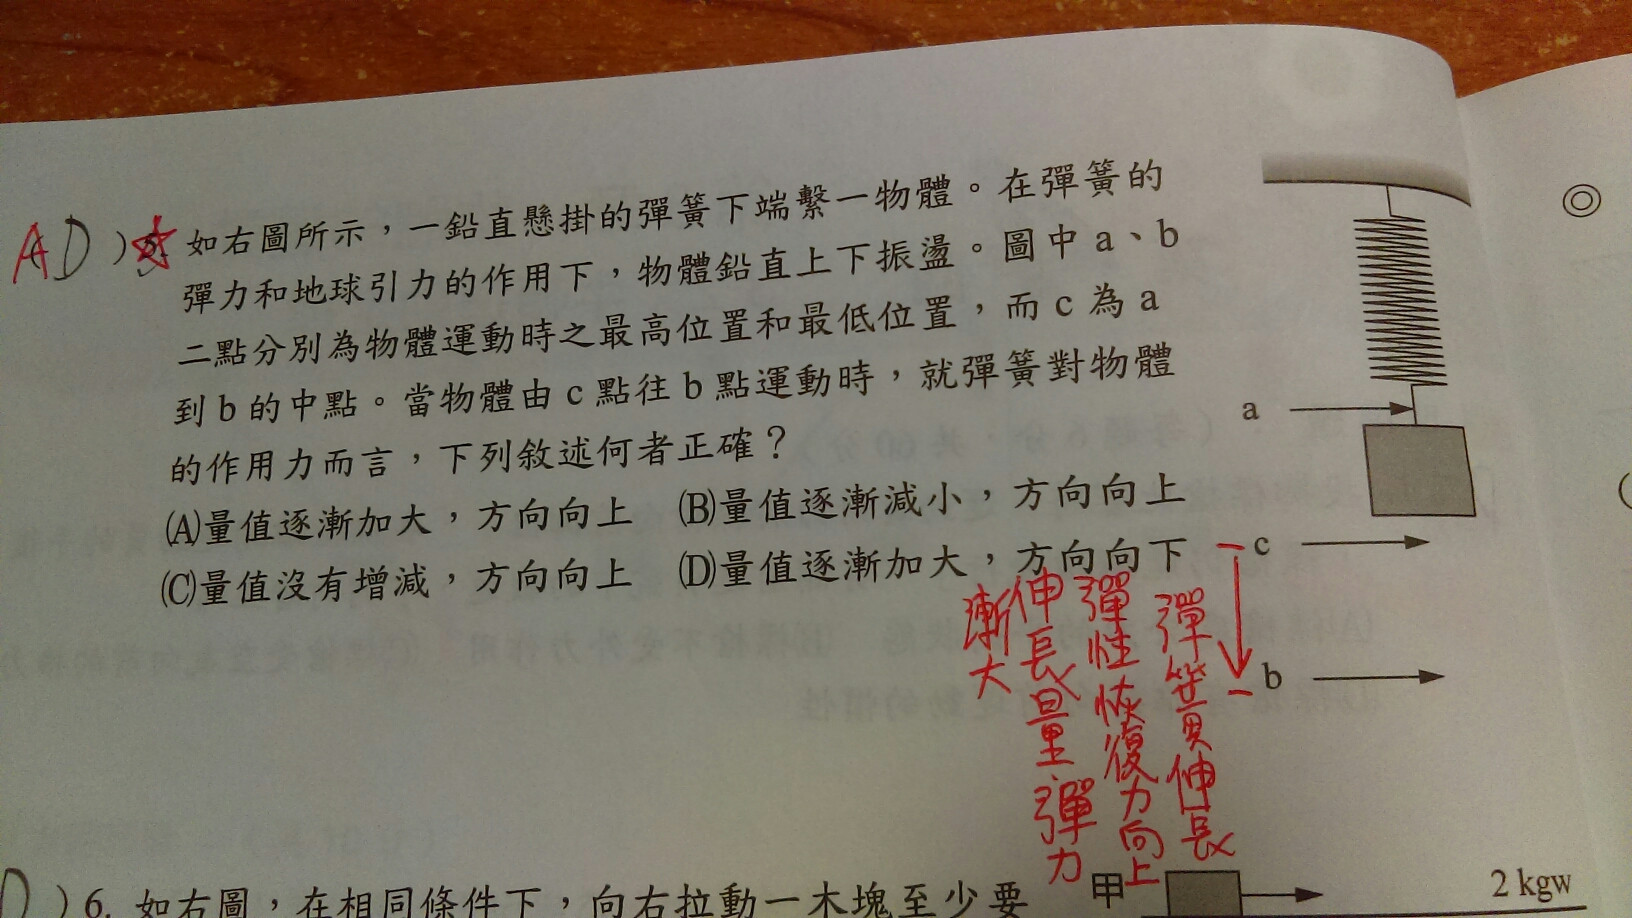 AD )5. 如右圖所示，一鉛直懸掛的彈簧下端繫一物體。在彈簧的
彈力和地球引力的作用下，物體鉛直上下振盪。圖中 a、b
二點分別為物體運動時之最高位置和最低位置，而 c 為 a
到 b 的中點。當物體由 c 點往 b 點運動時，就彈簧對物體
的作用力而言，下列敘述何者正確？
(A)量值逐漸加大，方向向上 (B)量值逐漸減小，方向向上
(C)量值沒有增減，方向向上 (D)量值逐漸加大，方向向下
a
c
b
彈簧伸長
彈性恢復力向上
伸長量、彈力
漸大
D )6. 如右圖，在相同條件下，向右拉動一木塊至少要
甲
2 kgw